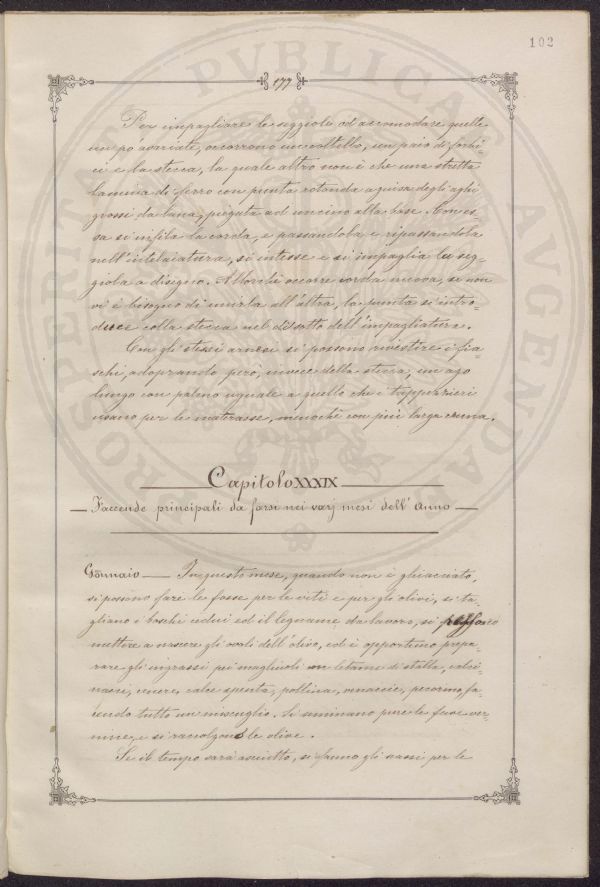 102
177
Per impagliare le seggiole ed accomodare quelle
un pò avariate, occorrono un coltello, un paio di forbi-
ci e la stecca, la quale altro non è che una stretta
lamina di ferro con punta rotonda a guisa degli aghi
grossi da lana, piegata ad uncino alla base. Con es-
sa si infila la corda, e passandola e ripassandola
nell'intelaiatura, si intesse e si impaglia la seg-
giola a disegno. Allorchè occorre corda nuova, se non
vi è bisogno di unirla all'altra, la punta si intro-
duce colla stecca nel disotto dell'impagliatura.
Con gli stessi arnesi si possono rivestire i fia-
schi, adoprando però, invece della stecca, un ago
lungo con uguale a quello che i tappezzieri
usano per le materasse, menochè con più larga cruna.
Capitolo XXXIX
Faccende principali da farsi nei varj mesi dell'Anno
Gennaio — In questo mese, quando non è ghiacciato,
si possono fare le fosse per le viti e per gli olivi, si ta-
gliano i boschi cedui ed il legname da lavoro, si possono
mettere a nascere gli ovoli dell'olivo, ed è opportuno prepa-
rare gli ingrassi pei magliuoli con letame di stalla, calci-
nacci, cenere, calce spenta, pollina, vinaccie, pecorino, fa-
cendo tutto un miscuglio. Si seminano pure le fave ver-
nine, e si raccolgono le olive.
Se il tempo sarà asciutto, si fanno gli per le